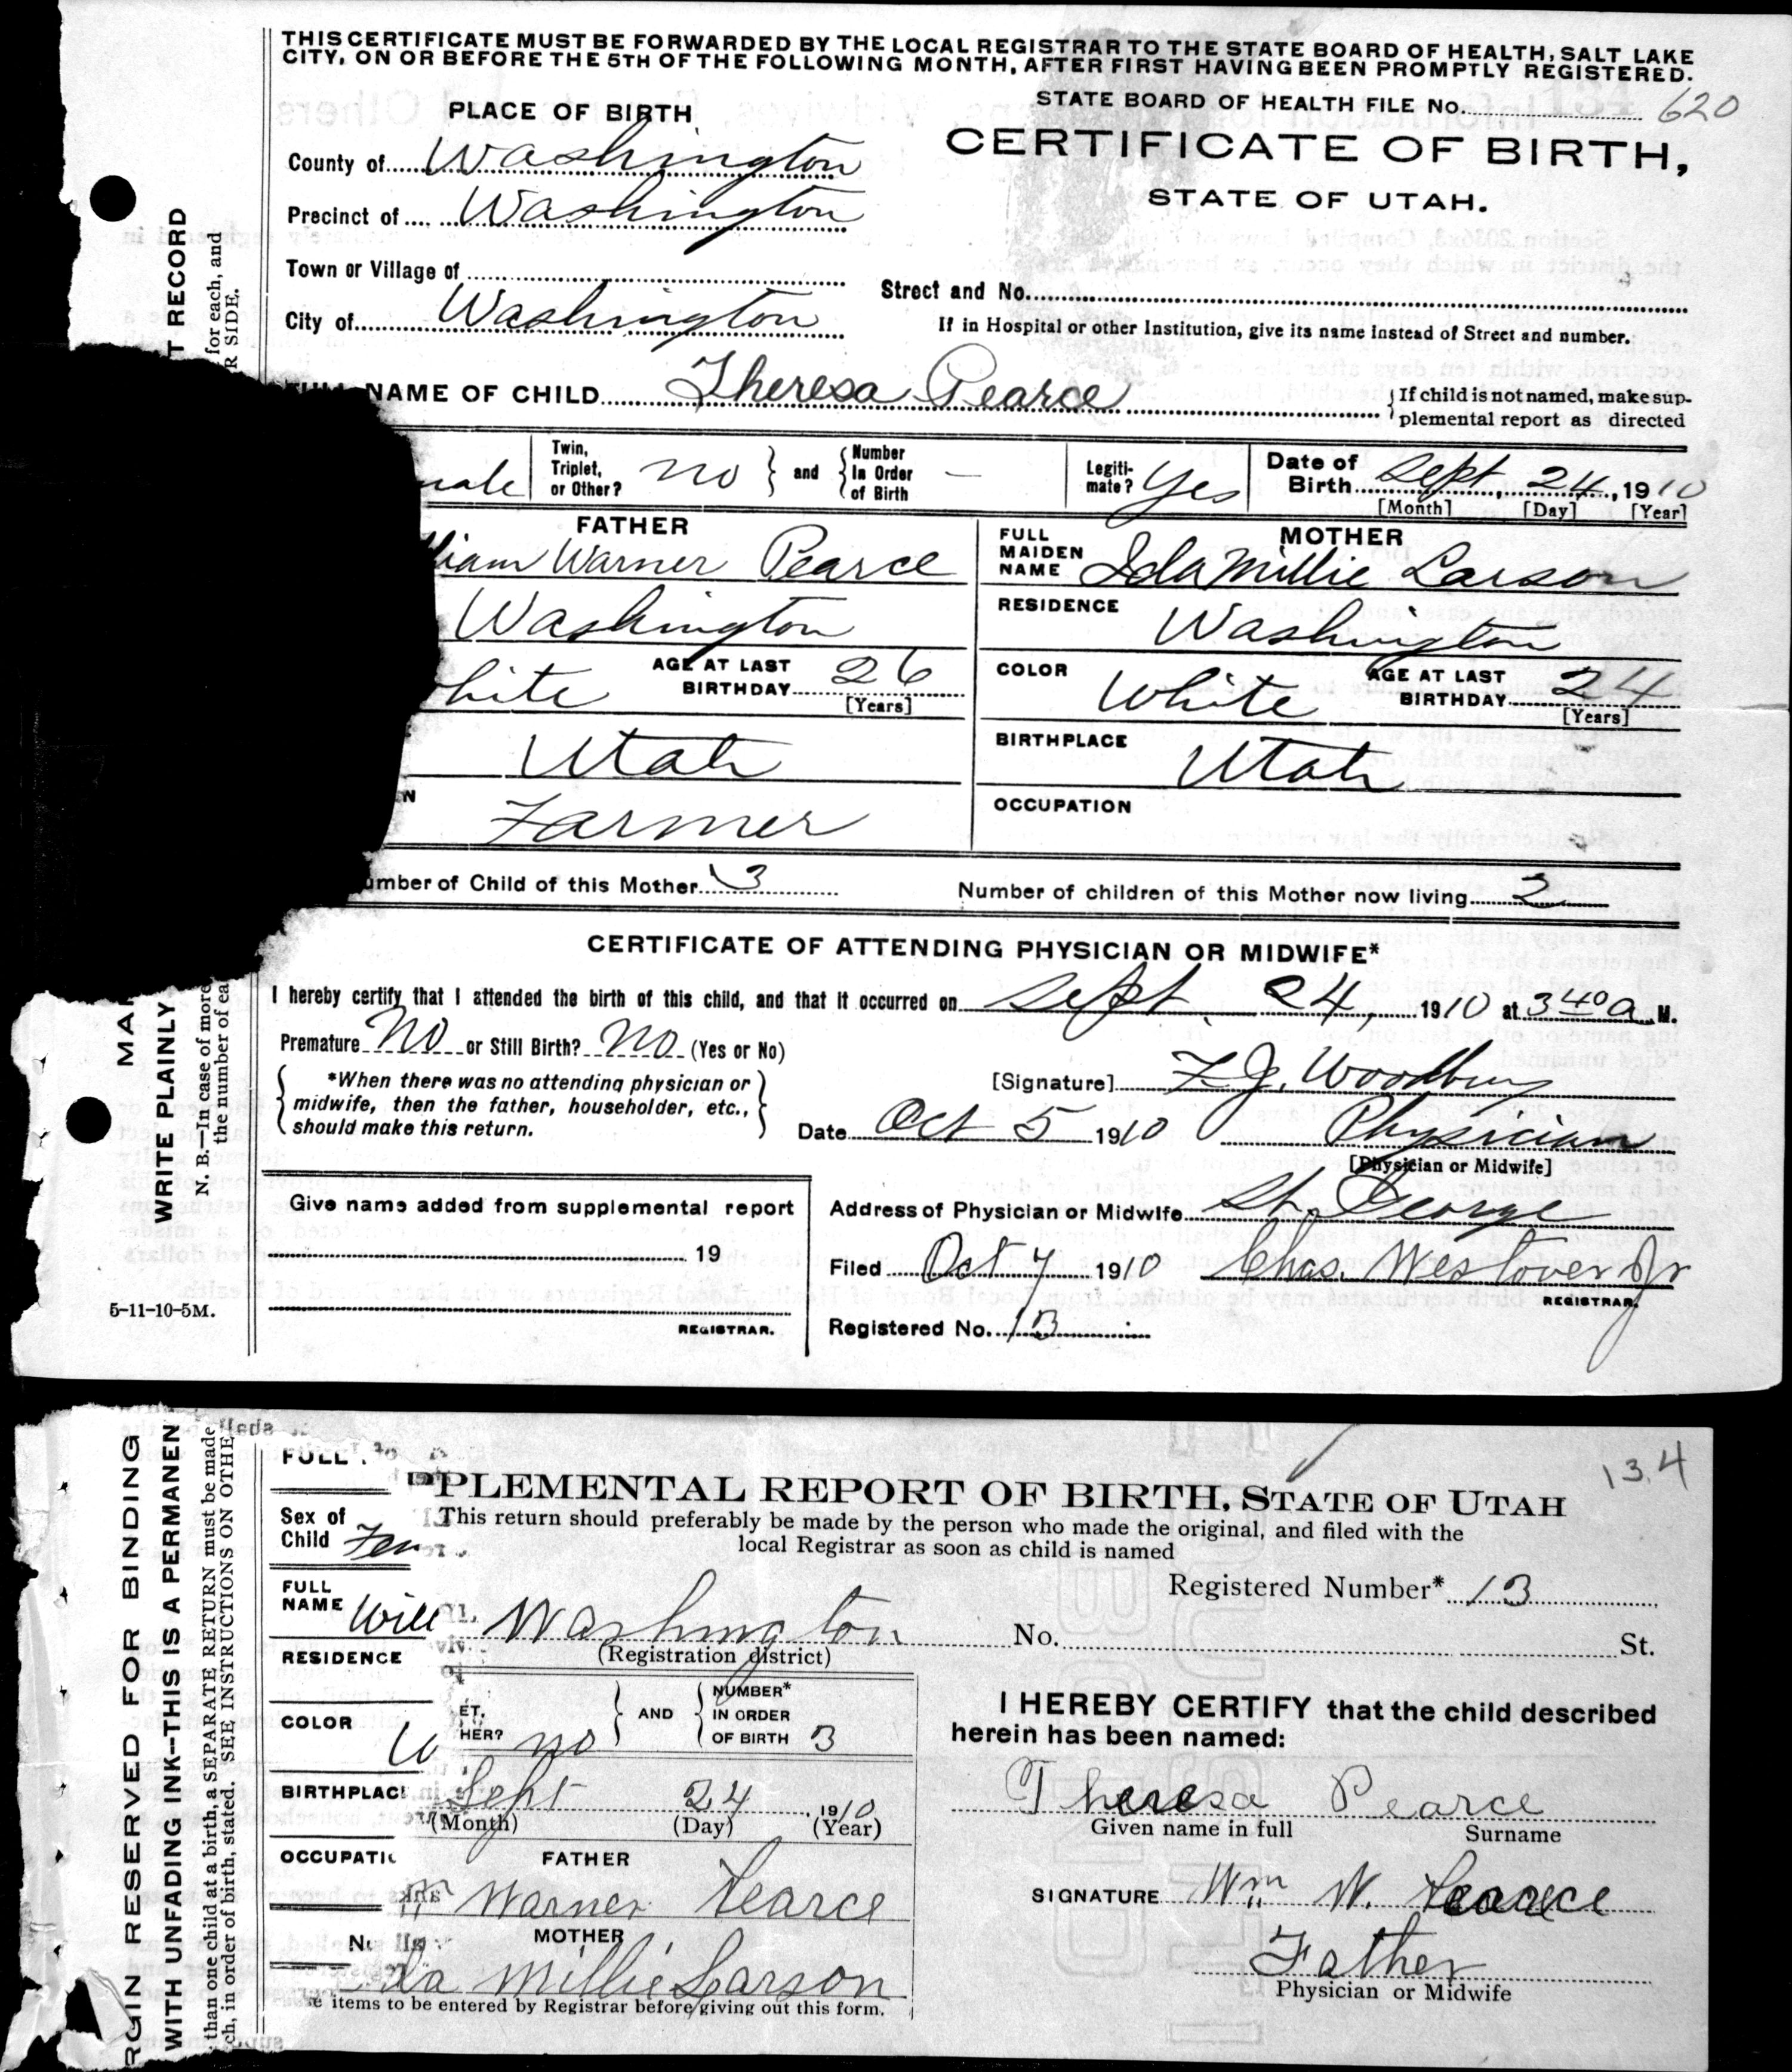 THIS CERTIFICATE MUST BE FORWARDED BY THE LOCAL REGISTRAR TO THE STATE BOARD OF HEALTH, SALT LAKE
CITY, ON OR BEFORE THE 5TH OF THE FOLLOWING MONTH, AFTER FIRST HAVING BEEN PROMPTLY REGISTERED.
STATE BOARD OF HEALTH FILE No. 620
PLACE OF BIRTH
CERTIFICATE OF BIRTH,
STATE OF UTAH.
County of Washington
Precinct of Washington
Town or Village of
Street and No.
City of Washington
If in Hospital or other Institution, give its name instead of Street and number.
NAME OF CHILD Theresa Pearce
If child is not named, make sup-
plemental report as directed
male
Twin,
Triplet,
or Other? no
and
Number
In Order
of Birth —
Legiti-
mate? Yes
Date of
Birth Sept, 24, 1910
[Month] [Day] [Year]
FATHER
liam Warner Pearce
Washington
hite
AGE AT LAST
BIRTHDAY 26
[Years]
Utah
N
Farmer
MOTHER
FULL
MAIDEN
NAME Ida Millie Larson
RESIDENCE Washington
COLOR White
AGE AT LAST
BIRTHDAY 24
[Years]
BIRTHPLACE Utah
OCCUPATION
umber of Child of this Mother 3
Number of children of this Mother now living 2
CERTIFICATE OF ATTENDING PHYSICIAN OR MIDWIFE*
I hereby certify that I attended the birth of this child, and that it occurred on Sept. 24, 1910 at 3 40 a. M.
Premature No or Still Birth? No (Yes or No)
*When there was no attending physician or
midwife, then the father, householder, etc.,
should make this return.
[Signature] F. J. Woodbury
Date Oct 5 1910 Physician
[Physician or Midwife]
Give name added from supplemental report
19
REGISTRAR.
Address of Physician or Midwife St. George
Filed Oct 7 1910 Chas. Westover Jr
REGISTRAR.
Registered No. 13
T RECORD
for each, and
R SIDE.
MAR
WRITE PLAINLY
N. B.—In case of more
the number of ea
5-11-10-5M.
RGIN RESERVED FOR BINDING
WITH UNFADING INK—THIS IS A PERMANEN
than one child at a birth, a SEPARATE RETURN must be made
ch, in order of birth, stated. SEE INSTRUCTIONS ON OTHE
FULL
Sex of
Child Fem
FULL
NAME Will
RESIDENCE
COLOR W
BIRTHPLAC
OCCUPATI
134
PLEMENTAL REPORT OF BIRTH, STATE OF UTAH
This return should preferably be made by the person who made the original, and filed with the
local Registrar as soon as child is named
Registered Number* 13
Washington No. St.
(Registration district)
ET,
HER? no
AND
NUMBER*
IN ORDER
OF BIRTH 3
Sept 24, 1910
(Month) (Day) (Year)
FATHER
m Warner Pearce
MOTHER
da Millie Larson
e items to be entered by Registrar before giving out this form.
I HEREBY CERTIFY that the child described
herein has been named:
Theresa Pearce
Given name in full Surname
SIGNATURE Wm W. Pearce
Father
Physician or Midwife